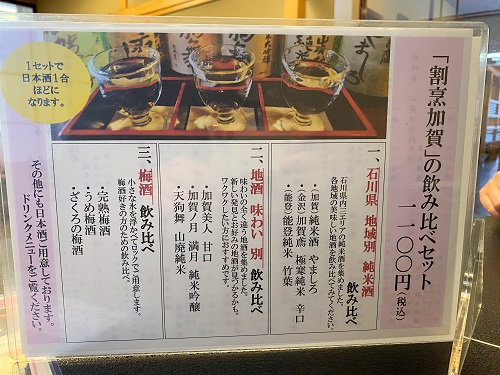 「割烹加賀」の飲み比べセット
一一〇〇円(税込)
1セットで
日本酒1合
ほどに
なります。
一、石川県 地域別 純米酒
飲み比べ
石川県内三エリアの純米酒を集めました。
各地域の美味しい地酒を飲み比べてみてください。
・(加賀)純米酒 やましろ
・(金沢)加賀鳶 極寒純米 辛口
・(能登)能登純米 竹葉
二、地酒 味わい別 飲み比べ
味わいの全く違う地酒を集めました。
新しい発見とお好みの地酒が見つかるかも。
ワクワクしたい方におすすめです。
・加賀美人 甘口
・加賀ノ月 満月 純米吟醸
・天狗舞 山廃純米
三、梅酒 飲み比べ
小さな氷を浮かべてロックでご用意します。
梅酒好きの方のための飲み比べ。
・完熟梅酒
・うめ梅酒
・ざくろの梅酒
その他にも日本酒ご用意しております。
ドリンクメニューをご覧ください。